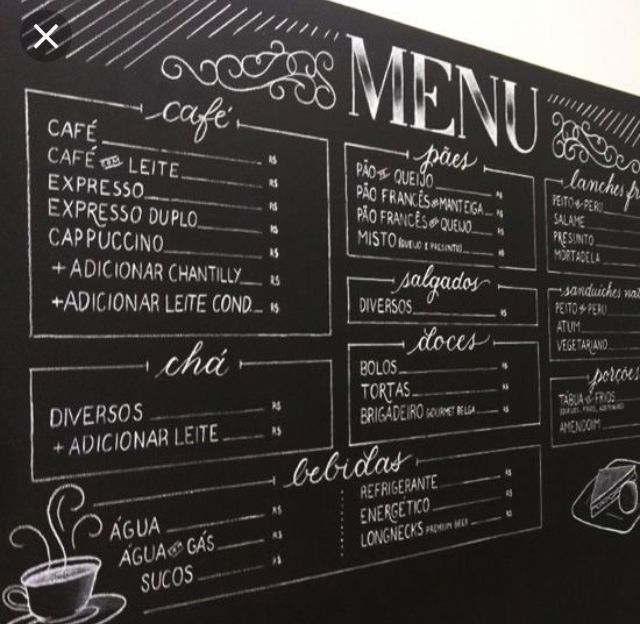 MENU
café
CAFÉ R$
CAFÉ com LEITE R$
EXPRESSO R$
EXPRESSO DUPLO R$
CAPPUCCINO R$
+ ADICIONAR CHANTILLY R$
+ADICIONAR LEITE COND. R$
chá
DIVERSOS R$
+ ADICIONAR LEITE R$
pães
PÃO de QUEIJO R$
PÃO FRANCÊS com MANTEIGA R$
PÃO FRANCÊS com QUEIJO R$
MISTO (QUEIJO E PRESUNTO) R$
salgados
DIVERSOS R$
doces
BOLOS R$
TORTAS R$
BRIGADEIRO GOURMET BELGA R$
bebidas
ÁGUA R$
ÁGUA com GÁS R$
SUCOS R$
REFRIGERANTE R$
ENERGÉTICO R$
LONGNECKS PREMIUM BEER R$
lanches
PEITO de PERU
SALAME
PRESUNTO
MORTADELA
sanduiches nat
PEITO de PERU
ATUM
VEGETARIANO
porções
TÁBUA de FRIOS
AMENDOIM